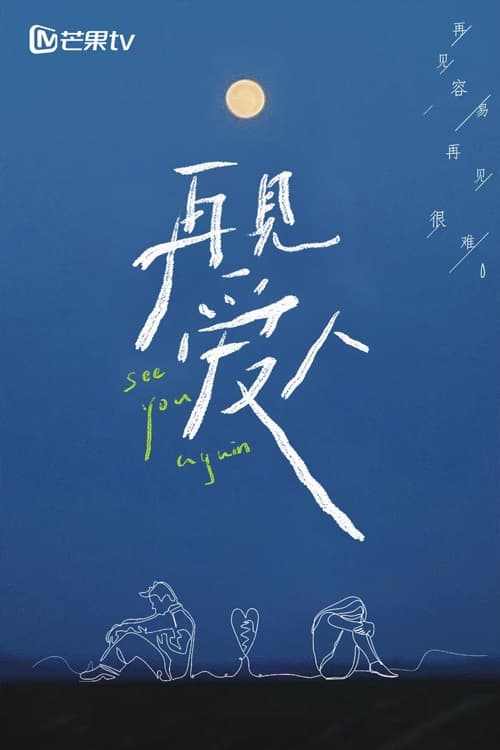 芒果tv
再见容易
再见
很难。
再見
爱人
see
you
again